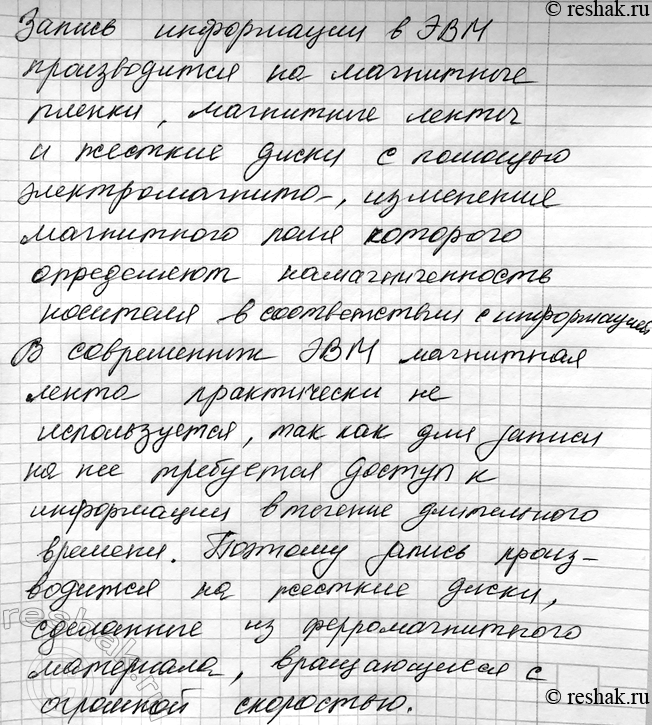 © reshak.ru
Запись информации в ЭВМ
производится на магнитные
пленки, магнитные ленты
и жесткие диски с помощью
электромагнита, изменения
магнитного поля которого
определяют намагниченность
носителя в соответствии с информацией
В современных ЭВМ магнитная
лента практически не
используется, так как для записи
на нее требуется доступ к
информации в течение длительного
времени. Поэтому запись произ-
водится на жесткие диски,
сделанные из ферромагнитного
материала, вращающиеся с
огромной скоростью.
reshak.ru
© reshak.ru